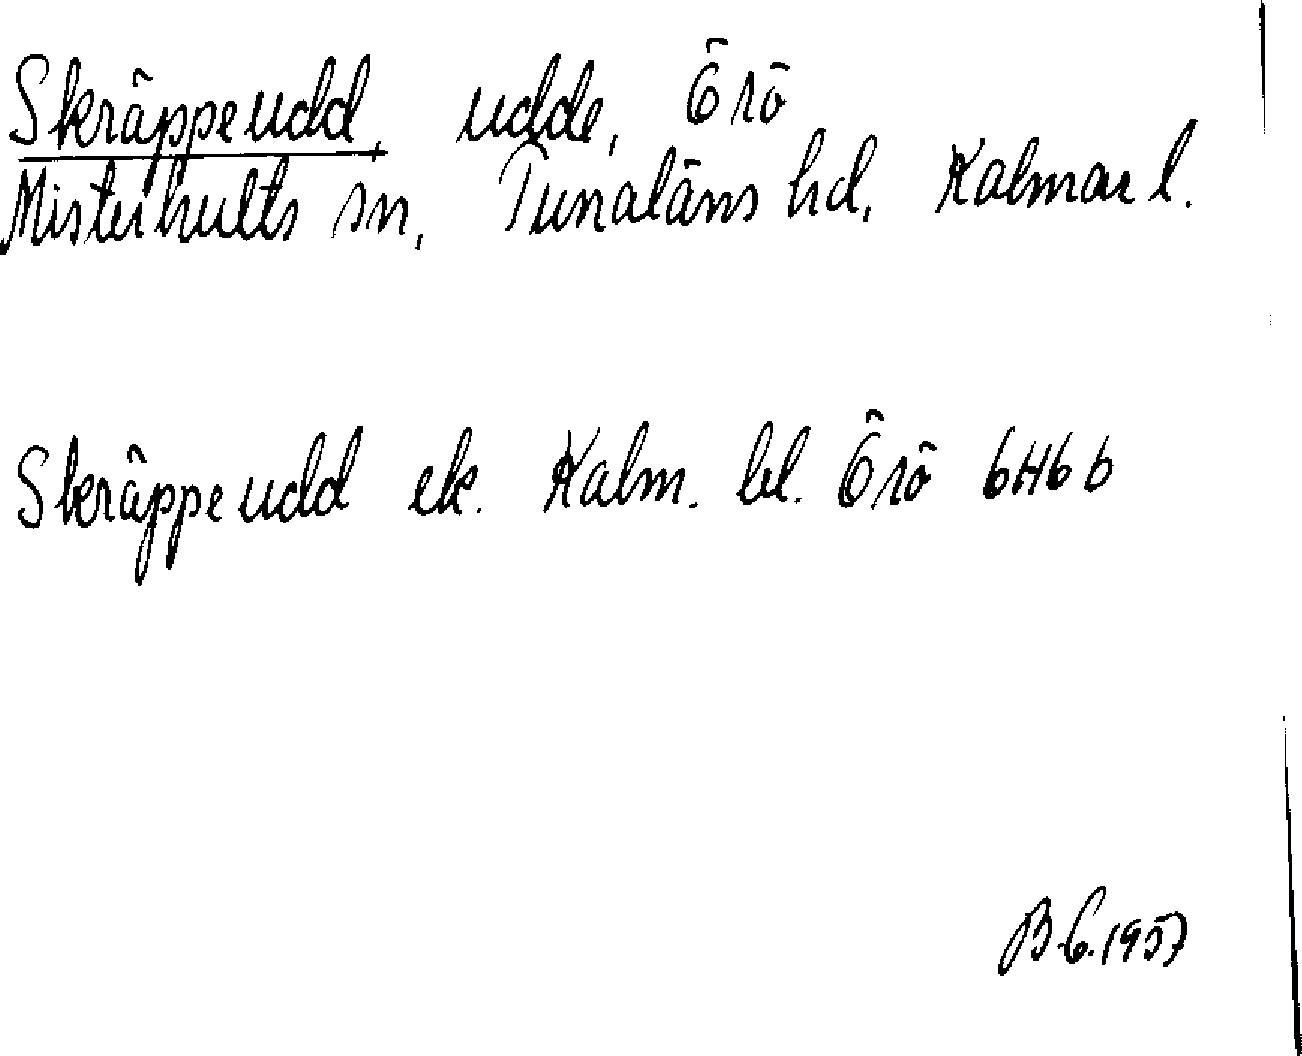 Skräppeudd, udde, Örö
Misterhults sn, Tunaläns hd, Kalmar l.
Skräppeudd ek. Kalm. bl. Örö 6H6b
B.G. 1957